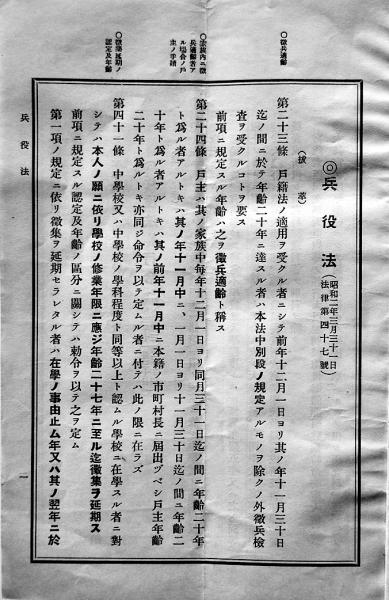 ◎兵役法
(昭和二年三月三十一日
法律第四十七號)
(拔萃)
○徵兵適齡
第二十三條 戶籍法ノ適用ヲ受クル者ニシテ前年十二月一日ヨリ其ノ年十一月三十日
迄ノ間ニ於テ年齡二十年ニ達スル者ハ本法中別段ノ規定アルモノヲ除クノ外徵兵檢
查ヲ受クルコトヲ要ス
前項ニ規定スル年齡ハ之ヲ徵兵適齡ト稱ス
○家族內ニ徵
兵適齡者ア
ル場合ノ戶
主ノ手續
第二十四條 戶主ハ其ノ家族中每年十二月一日ヨリ同月三十一日迄ノ間ニ年齡二十年
ト爲ル者アルトキハ其ノ年十一月中ニ、一月一日ヨリ十一月三十日迄ノ間ニ年齡二
十年ト爲ル者アルトキハ其ノ前年十一月中ニ本籍ノ市町村長ニ屆出ヅベシ戶主年齡
二十年ト爲ルトキ亦同ジ命令ヲ以テ定ムル者ニ付テハ此ノ限ニ在ラズ
○徵集延期ノ
認定及年齡
第四十一條 中學校又ハ中學校ノ學科程度ト同等以上ト認ムル學校ニ在學スル者ニ對
シテハ本人ノ願ニ依リ學校ノ修業年限ニ應ジ年齡二十七年ニ至ル迄徵集ヲ延期ス
前項ニ規定スル認定及年齡ノ區分ニ關シテハ勅令ヲ以テ之ヲ定ム
第一項ノ規定ニ依リ徵集ヲ延期セラレタル者ハ在學ノ事由止ム年又ハ其ノ翌年ニ於
兵役法
一